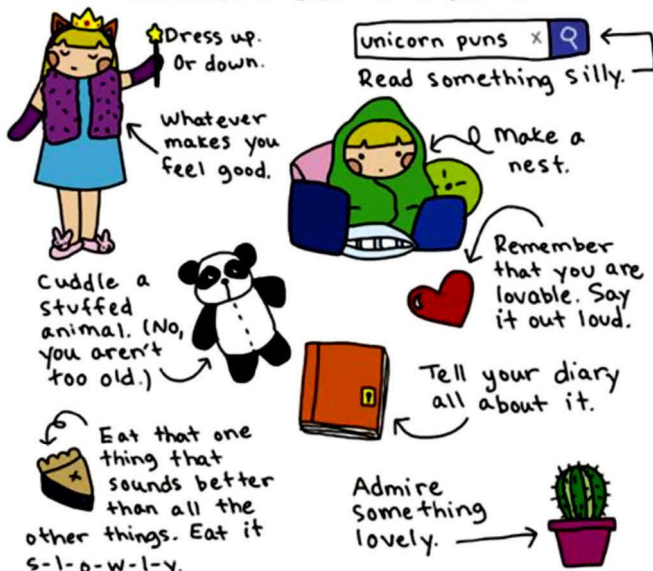 Dress up.
Or down.
Whatever
makes you
feel good.
unicorn puns x
Read something silly.
Make a
nest.
Remember
that you are
lovable. Say
it out loud.
Cuddle a
stuffed
animal. (No,
you aren't
too old.)
Tell your diary
all about it.
Eat that one
thing that
sounds better
than all the
other things. Eat it
s-l-o-w-l-y.
Admire
something
lovely.